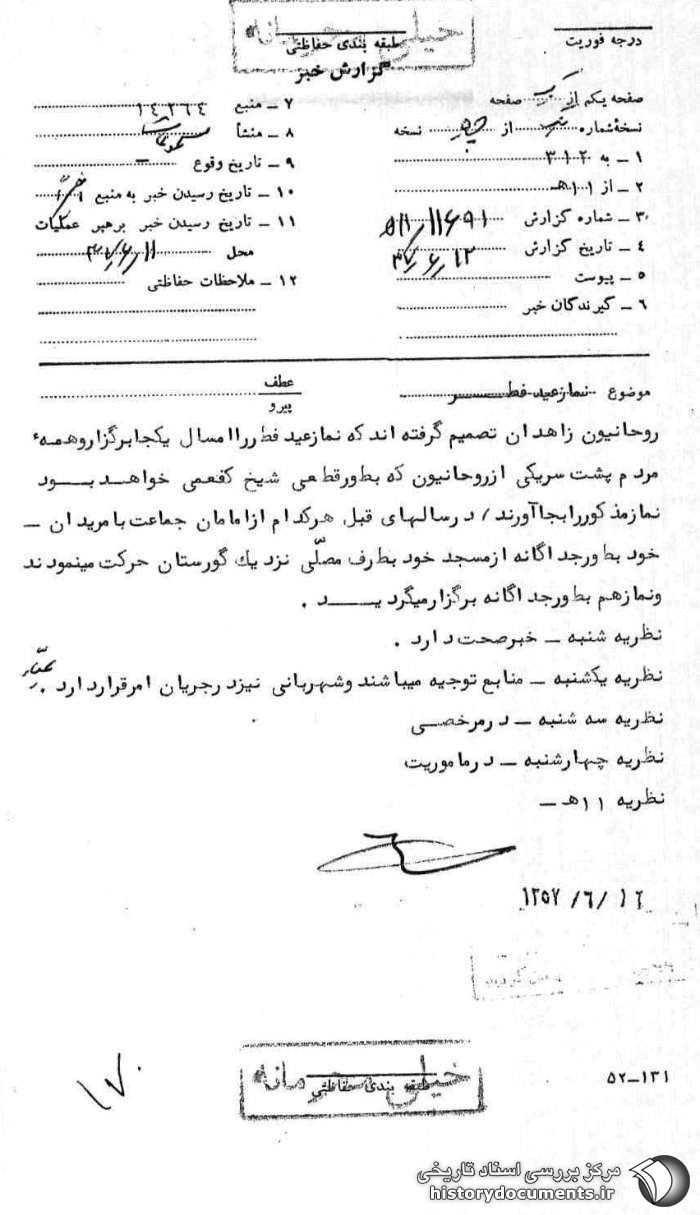 خیلی محرمانه
طبقه بندی حفاظتی
درجه فوریت
گزارش خبر
صفحه یکم از یک صفحه
نسخه شماره از نسخه
۱ - به ۳۱۲
۲ - از ۱۱هـ
۳ - شماره گزارش
۴ - تاریخ گزارش
۵ - پیوست
۶ - گیرندگان خبر
۷ - منبع ۱۴۲۶۴
۸ - منشأ
۹ - تاریخ وقوع -
۱۰ - تاریخ رسیدن خبر به منبع
۱۱ - تاریخ رسیدن خبر برهبر عملیات
محل
۱۲ - ملاحظات حفاظتی
موضوع نماز عید فطر
عطف
پیرو
روحانیون زاهدان تصمیم گرفته اند که نماز عید فطر را امسال یکجا برگزار و همهٔ
مردم پشت سر یکی از روحانیون که بطور قطعی شیخ کفعمی خواهد بود
نماز مذکور را بجا آورند / در سالهای قبل هر کدام از امامان جماعت با مریدان -
خود بطور جداگانه از مسجد خود بطرف مصلّی نزدیک گورستان حرکت مینمودند
و نماز هم بطور جداگانه برگزار میگردید .
نظریه شنبه - خبر صحت دارد .
نظریه یکشنبه - منابع توجیه میباشند و شهربانی نیز در جریان امر قرار دارد .
نظریه سه شنبه - در مرخصی
نظریه چهارشنبه - در ماموریت
نظریه ۱۱هـ -
۱۳۵۷/۶/۱۶
۱۷۰
خیلی محرمانه
طبقه بندی حفاظتی
۵۲-۱۳۱
مرکز بررسی اسناد تاریخی
historydocuments.ir